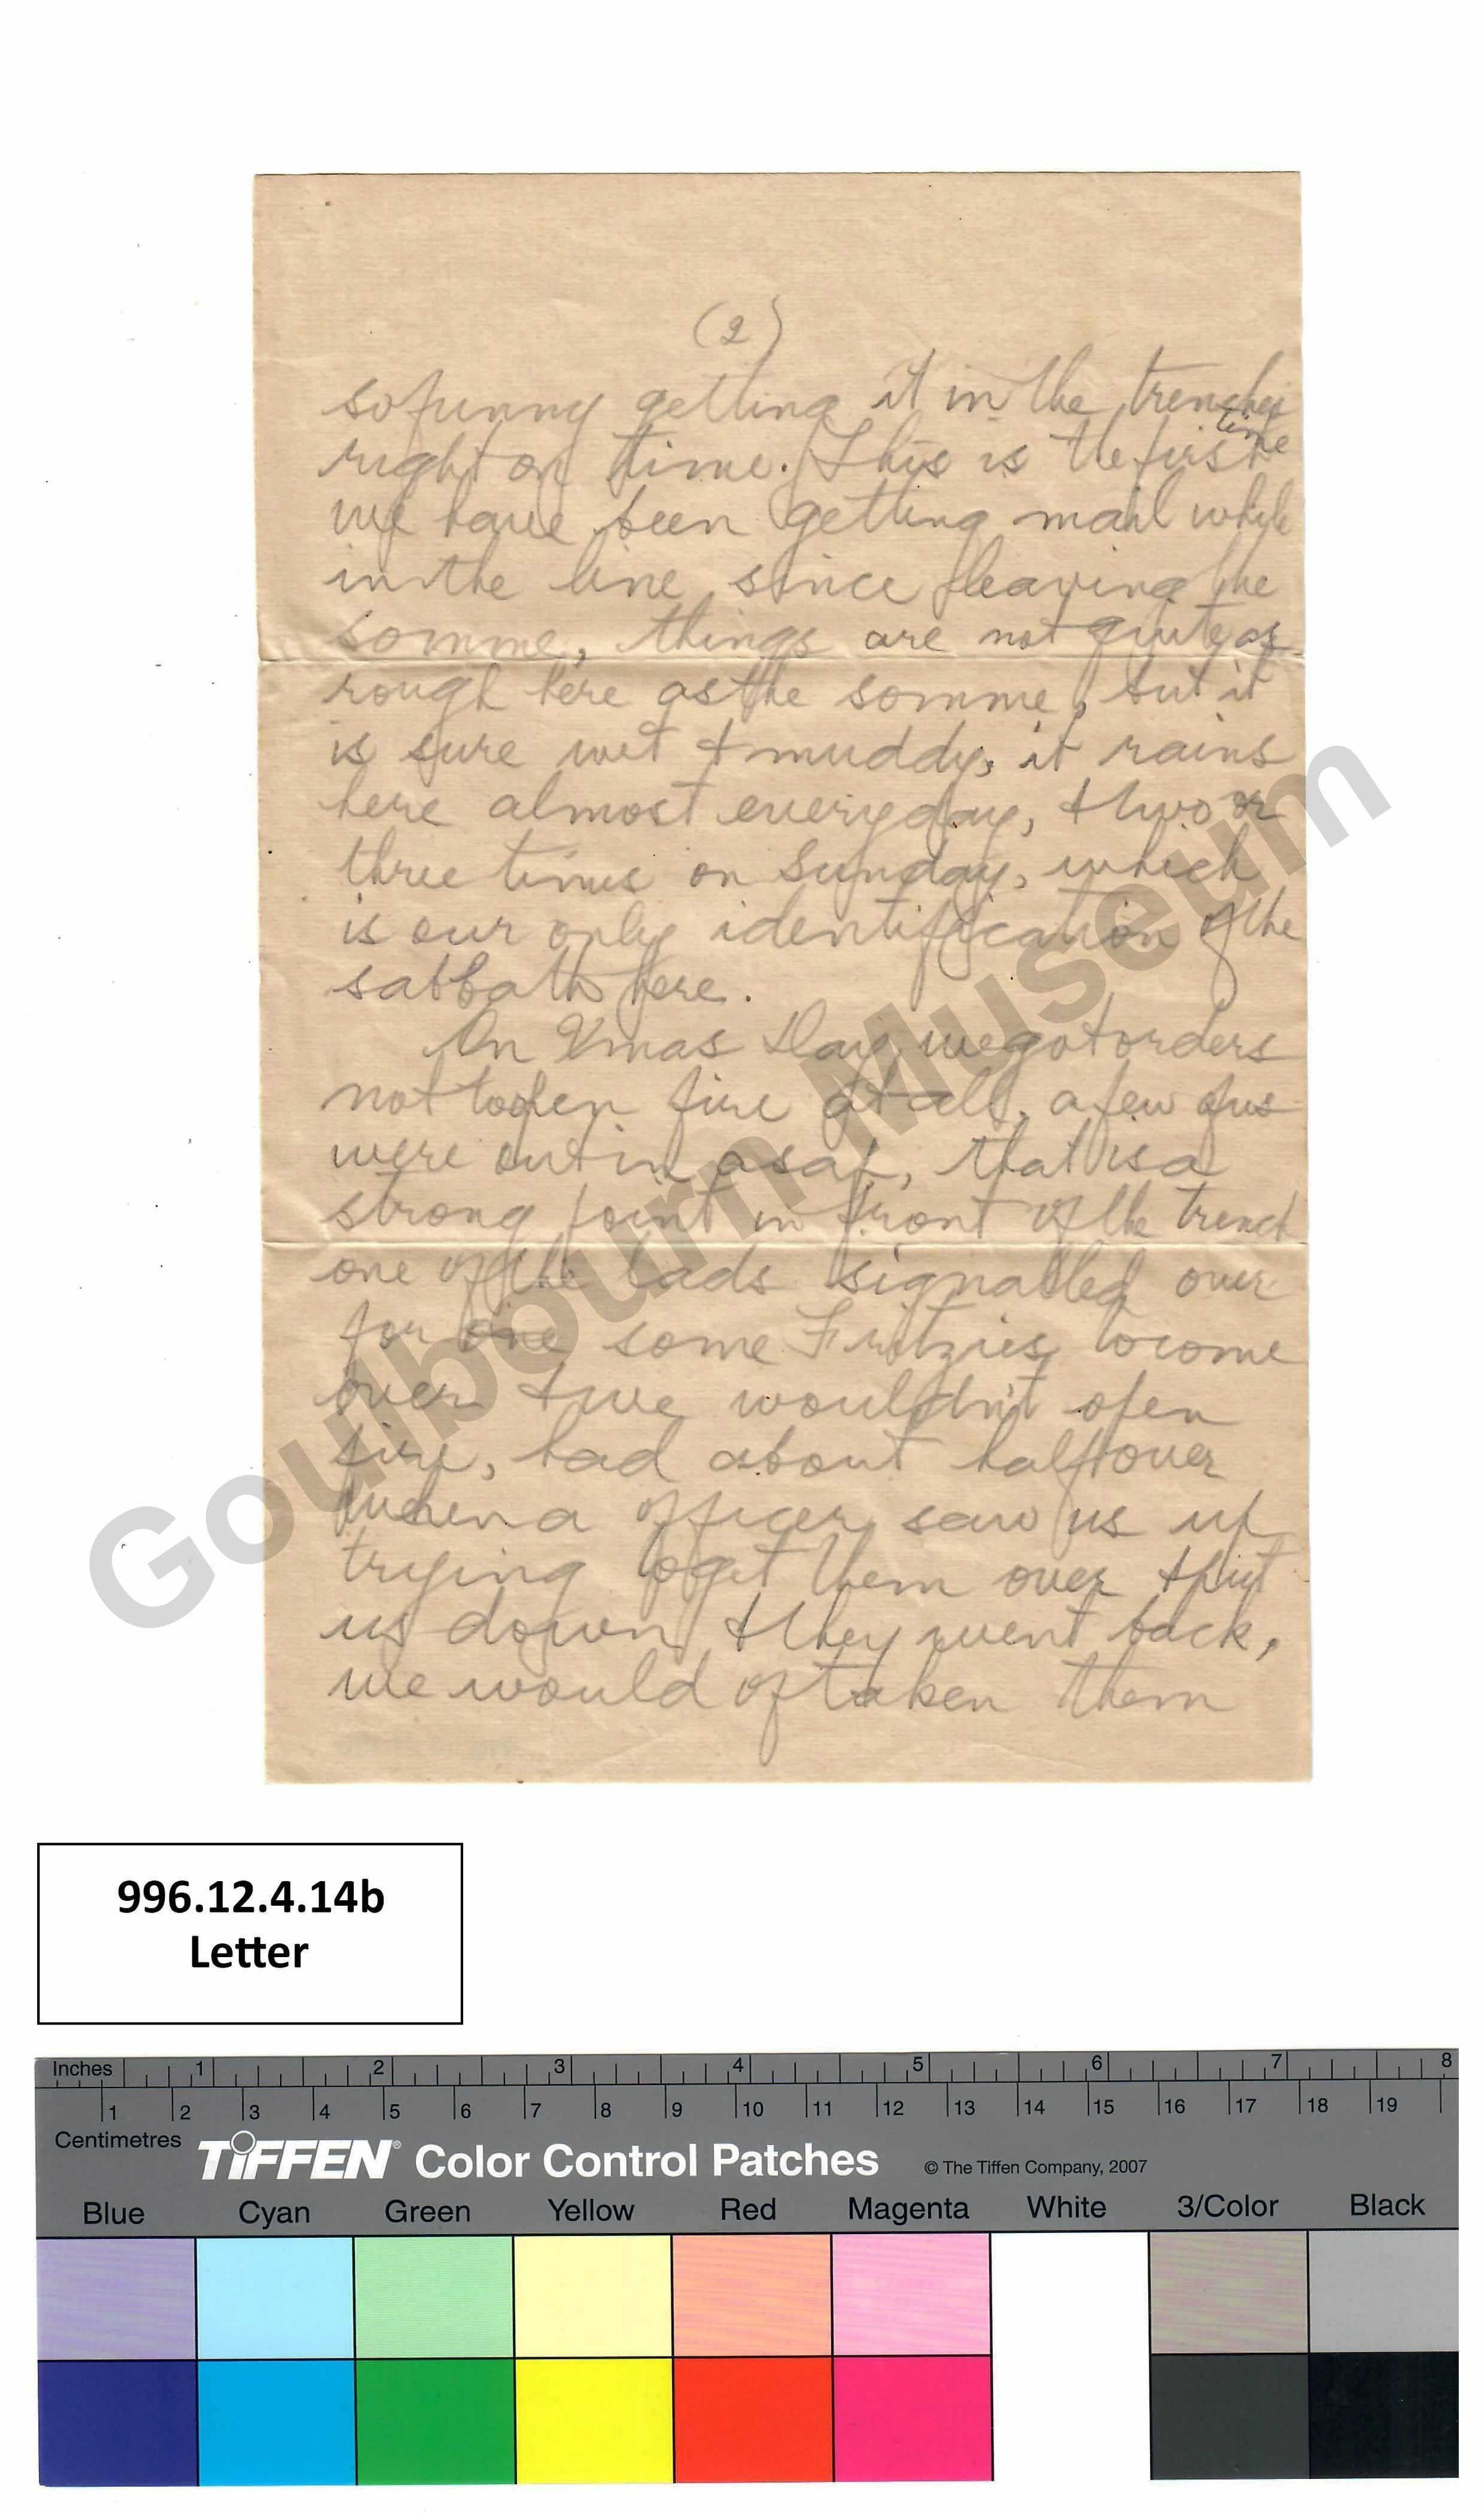 (2)
so funny getting it in the trenches
right on time. This is the first time
we have been getting mail while
in the line since leaving the
somme, things are not quite as
rough here as the somme, but it
is sure wet & muddy, it rains
here almost everyday, & two or
three times on Sunday, which
is our only identification of the
sabbath here.
On Xmas Day we got orders
not to open fire at all, a few of us
were out in a sap, that is a
strong point in front of the trench
one of the lads signalled over
for one some Fritzies to come
over & we wouldn't open
fire, had about half over
when a officer saw us up
trying to get them over & put
us down & they went back,
we would of taken them
Goulbourn Museum
996.12.4.14b
Letter
Inches 1 2 3 4 5 6 7 8
1 2 3 4 5 6 7 8 9 10 11 12 13 14 15 16 17 18 19
Centimetres
TIFFEN® Color Control Patches © The Tiffen Company, 2007
Blue Cyan Green Yellow Red Magenta White 3/Color Black